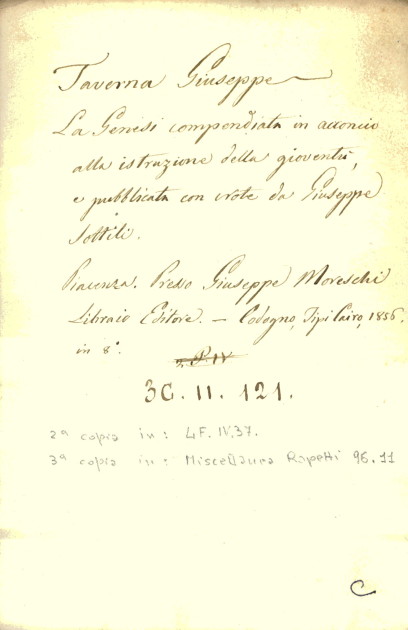 Taverna Giuseppe
La Genesi compendiata in acconcio
alla istruzione della gioventù,
e pubblicata con note da Giuseppe
Sottili.
Piacenza. Presso Giuseppe Moreschi
Libraio Editore. — Codogno, Tipi Cairo, 1856.
in 8°.
3C. II. 121.
2ª copia in: 4F. IV. 37.
3ª copia in: Miscellanea Rapetti 96.11
C